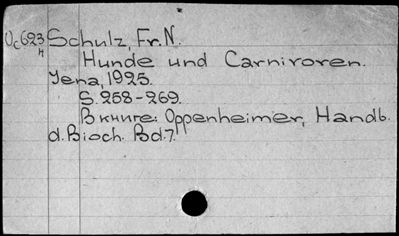 Uc623 Schulz, Fr. N.
н
Hunde und Carnivoren.
Jena, 1925.
S. 258-269.
В книге: Oppenheimer, Handb.
d. Bioch. Bd. 7.